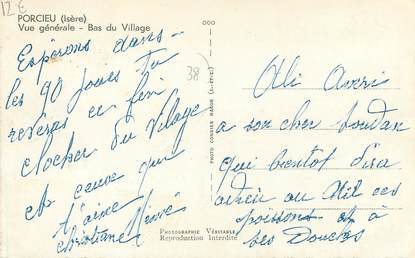 12€
PORCIEU (Isère)
Vue générale - Bas du Village
Espérons dans
les 90 jours tu
reveras ce fin
clocher du Village
et ceux qui
t'aime
Christiane Mimé
38
PHOTO COMBIER MACON (S.-ET-L.)
PHOTOGRAPHIE VÉRITABLE
Reproduction Interdite
Ali
a son cher
qui bientôt dira
adieu au Nil ces
poissons et à
ses Douches